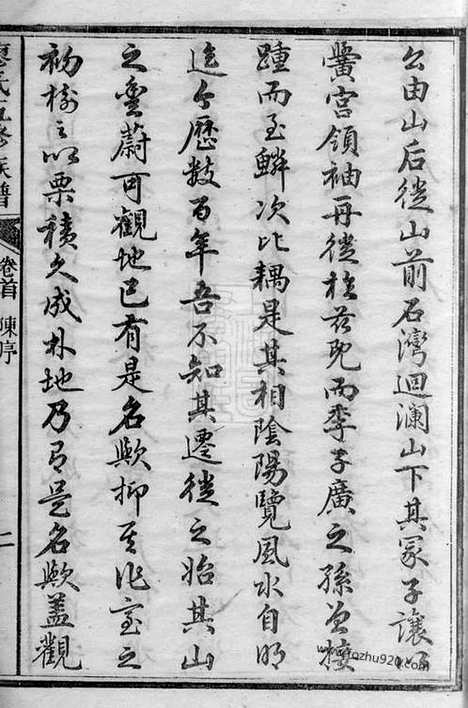 公由山后徙山前石灣迴瀾山下其冢子讓
黌宮領袖再徙於茲既而季子廣之孫曾接
踵而至鱗次比耦是其相陰陽覽風水自明
迄今歷數百年吾不知其遷徙之始其山
之蔚可觀地已有是名歟抑作室之
初樹之以栗積久成林地乃有是名歟蓋觀
氏五修族譜
卷首
陳序
二
www.fozhu920.com